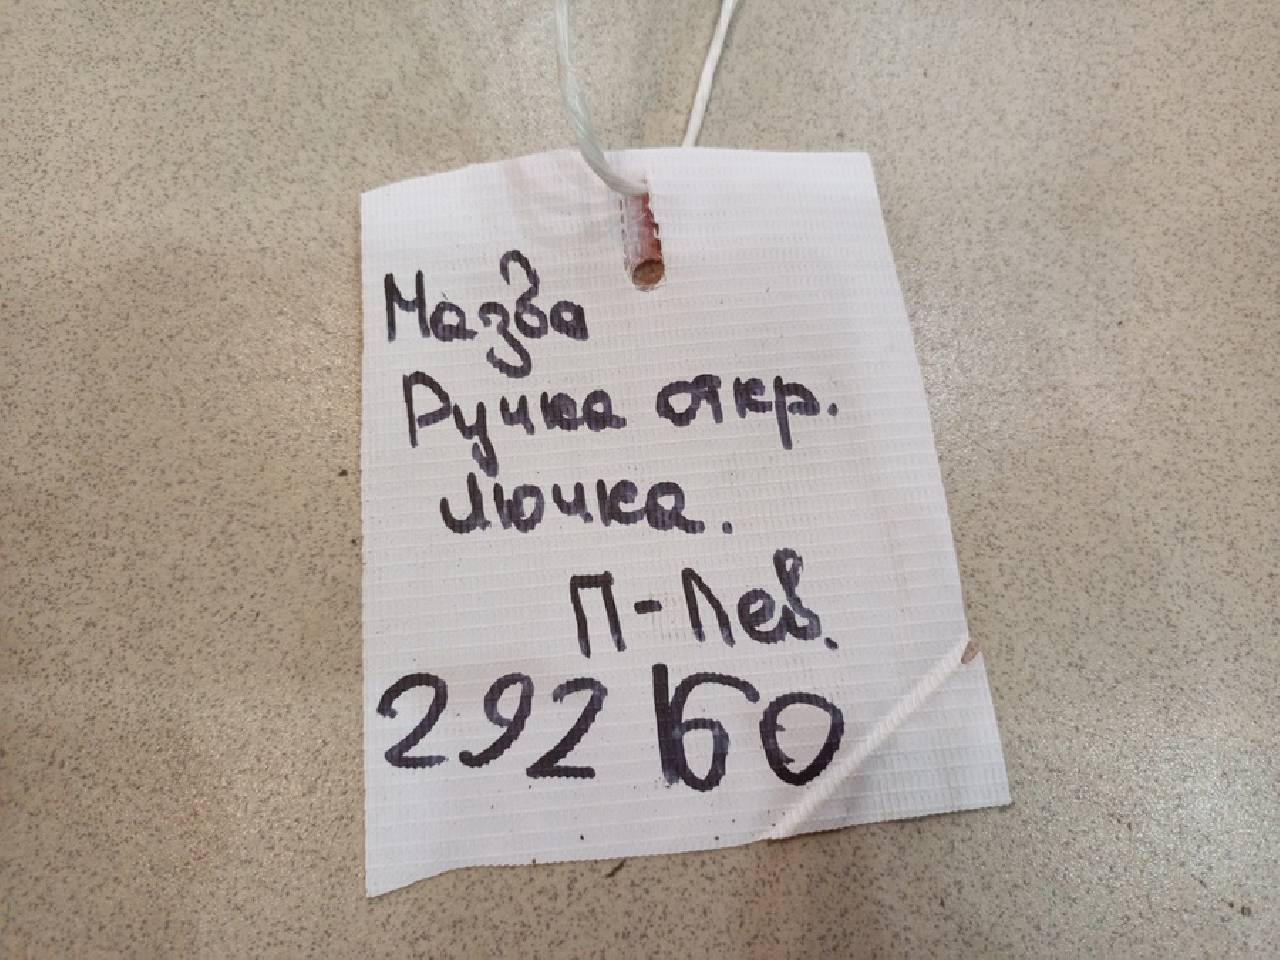 Мазва
Ручка откр.
лючка.
П-Лев.
292160